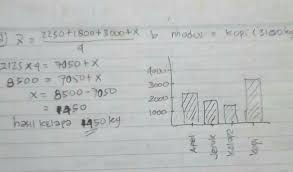 x̄ = 2250+1800+3000+x
4
b modus = kopi (3100 kg
2125 x 4 = 7050+x
8500 = 7050+x
x = 8500 - 7050
= 1450
hasil kelapa 1450 kg
4000
3000
2000
1000
Apel
Jeruk
Kelapa
Kopi